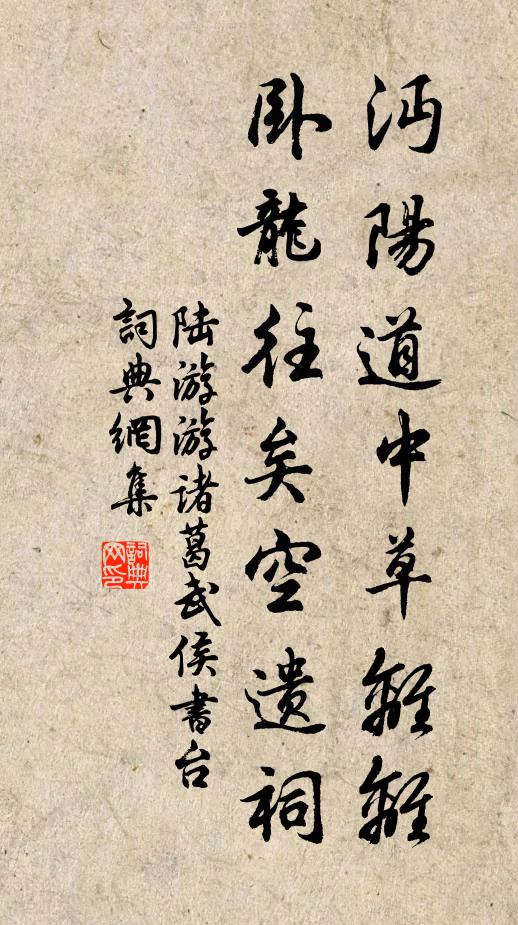 沔陽道中草離離
卧龍往矣空遺祠
陆游游诸葛武侯書台
詞典網集
詞典
网印